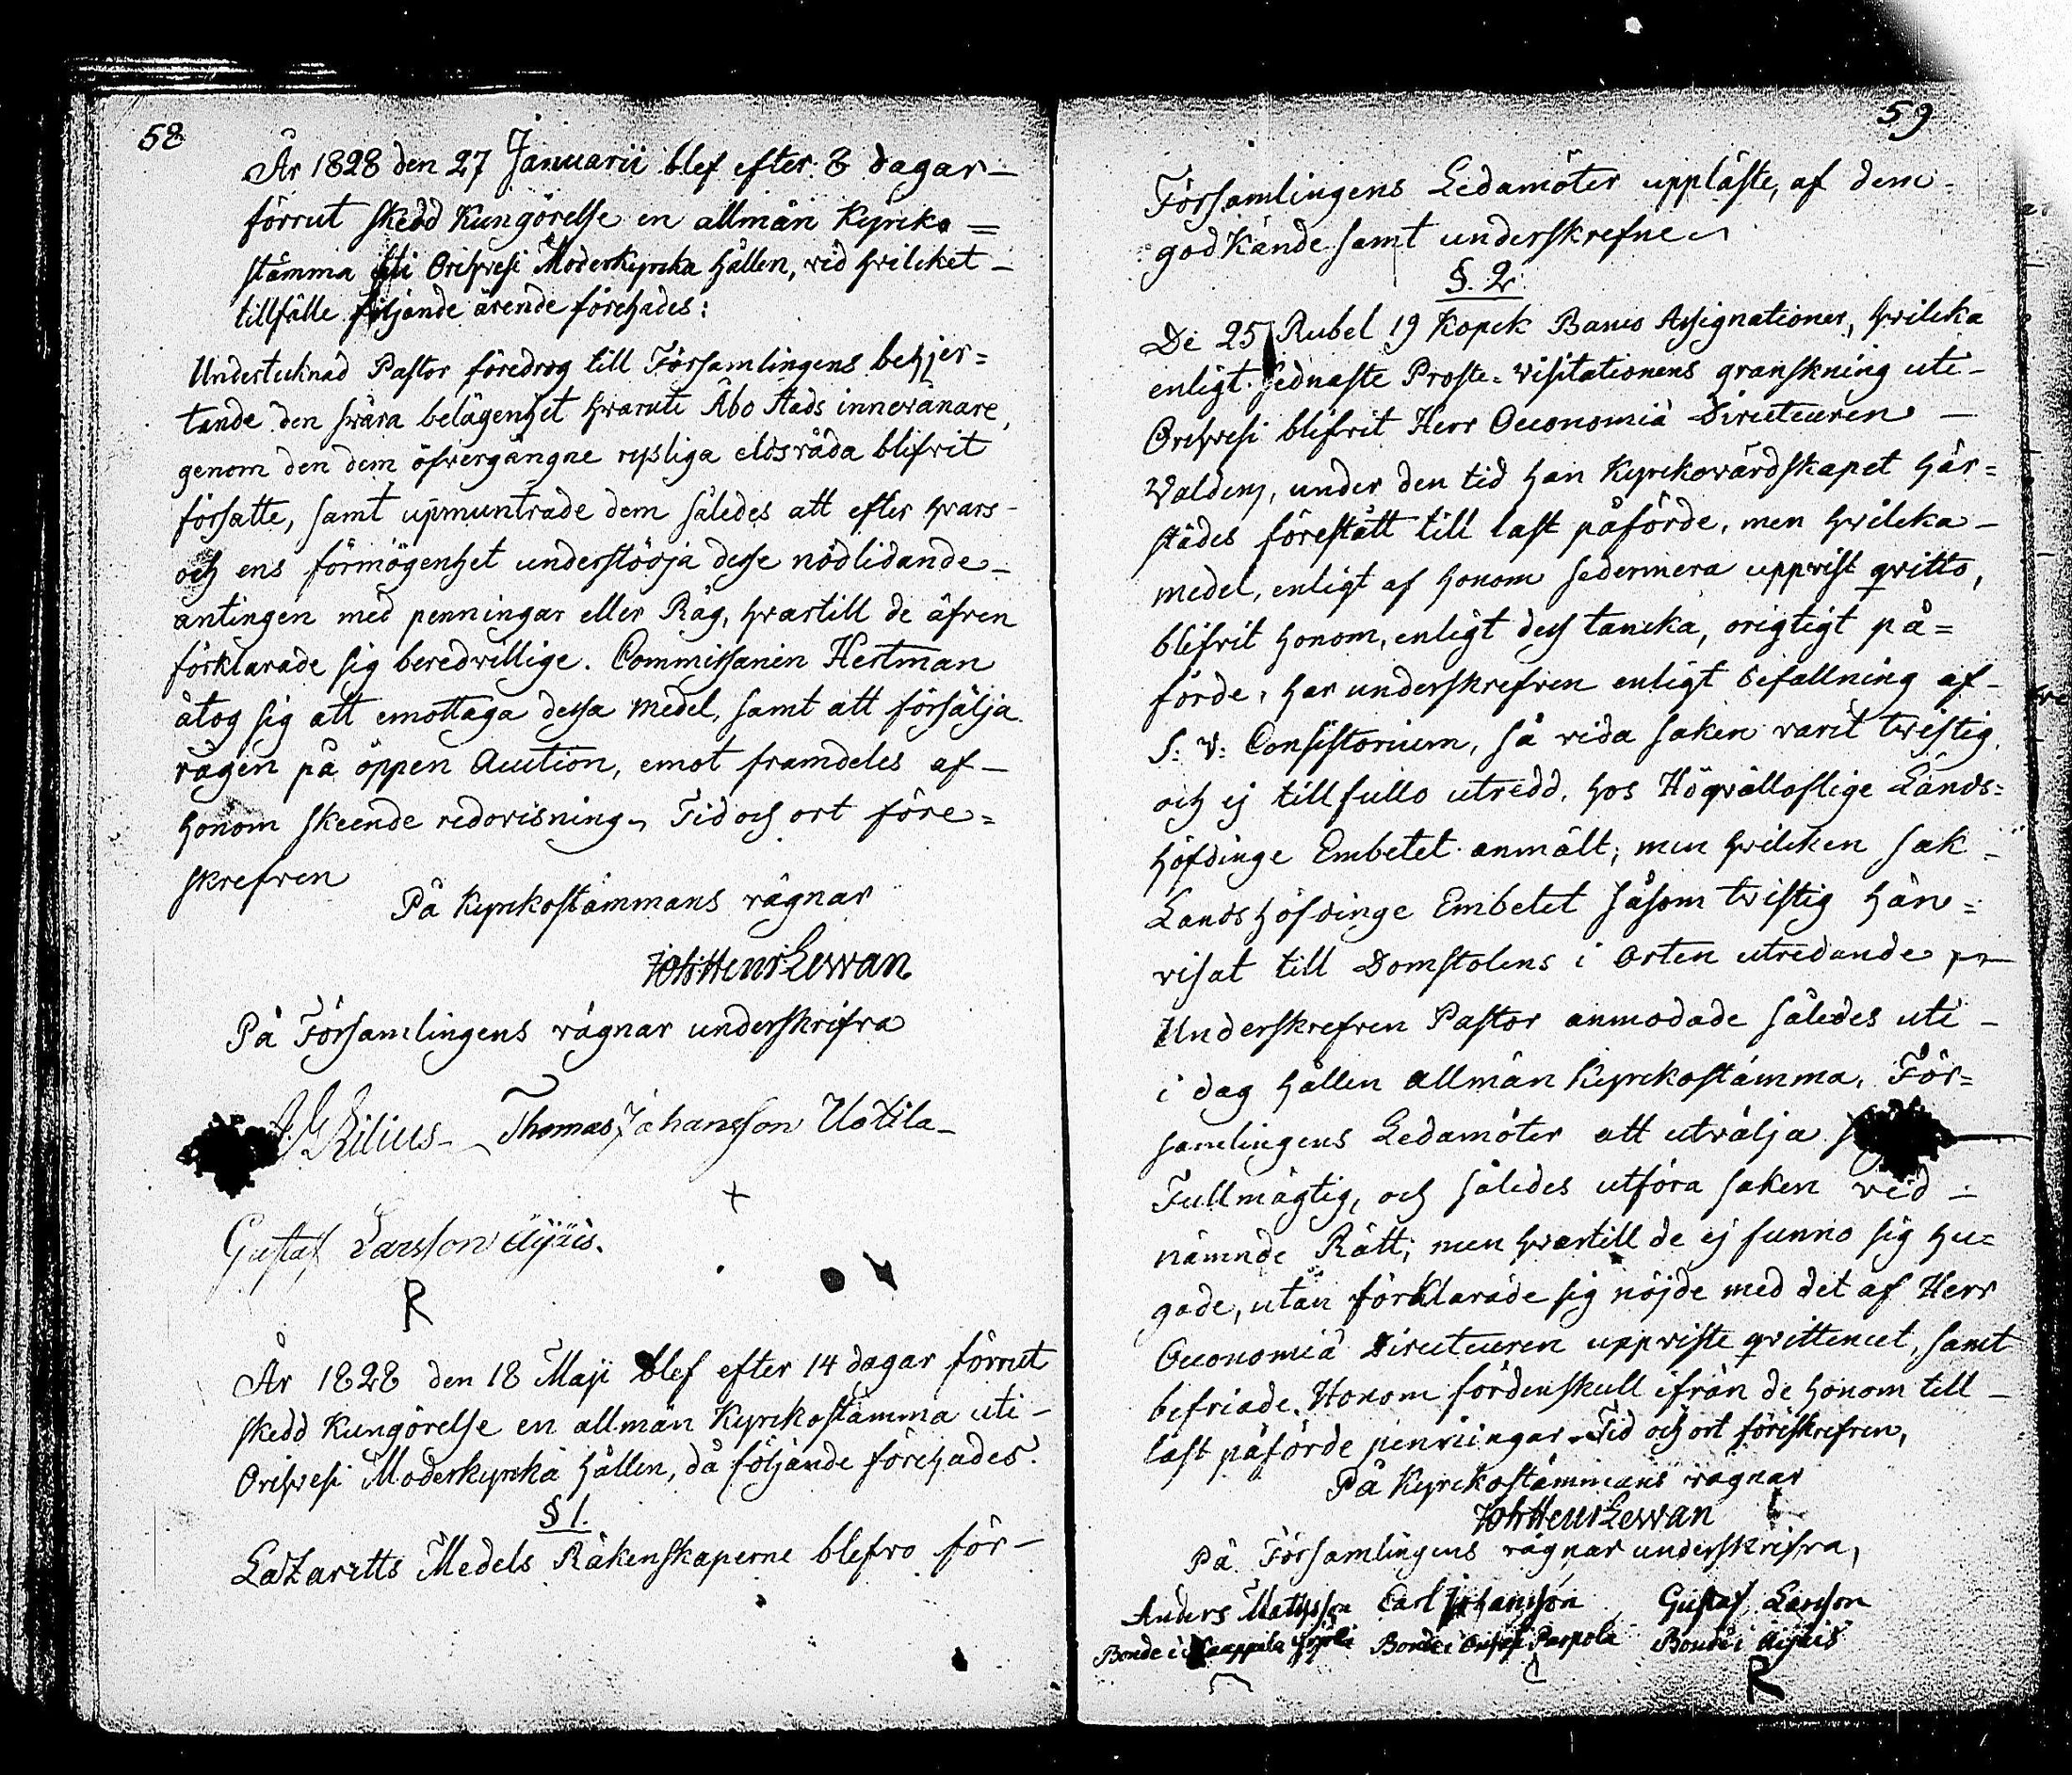 58
År 1828 den 27 Januarii blef efter 8 dagar –
förrut skedd Kungörelse en allmän Kyrcko =
stämma uti Orihvesi Moderkyrcka hållen, vid hvilcket –
tillfälle följande ärende förehades:
Undertecknad Pastor föredrog till Församlingens behjer=
tande den svåra belägenhet hvaruti Åbo stads innevånare,
genom den dem öfvergångne rysliga eldsvåda blifvit
försatte, samt upmuntrade dem således att efter hvars –
och ens förmögenhet understödja desse nödlidande –
antingen med penningar eller Råg, hvartill de äfven
förklarade sig beredvillige. Commissarien Hertman
åtog sig att emottaga dessa medel, samt att försälja
rågen på öppen Auction, emot framdeles af –
honom skeende redovisning. Tid och ort före=
skrefven
På Kyrckostämmans vägnar
Joh Henr Lewan
På Församlingens vägnar underskrifva
Thomas Johansson Uotila –
+
Gustaf Larsson Äijäis.
R
År 1828 den 18 Maji blef efter 14 dagar förrut
skedd Kungörelse en allmän Kyrckostämma uti –
Orihvesi Moderkyrcka hållen, då följande förehades.
§ 1.
Lazaretts Medels Räkenskaperne blefvo för –
59
Församlingens Ledamöter uppläste, af dem –
godkände samt underskrefne
§. 2.
De 25 Rubel 19 Kopek Banco Assignationer, hvilcka
enligt sednaste Proste=Visitationens granskning uti –
Orihvesi blifvit Herr Oeconomiä Directeuren –
Valdens, under den tid han Kyrckovärdskapet här=
städes förestått till last påförde, men hvilcka –
medel, enligt af honom sedermera uppvist qvitto,
blifvit honom, enligt dess tancka, origtigt på=
förde, har underskrefven enligt befallning af –
S. V. Consistorium, så vida saken varit tvistig,
och ej till fullo utredd, hos Högvällofliga Lands=
höfdinge Embetet anmält; men hvilcken sak –
Landshöfdinge Embetet såsom tvistig hän=
visat till Domstolens i Orten utredande
Underskrefven Pastor anmodade således uti –
i dag hållen allmän Kyrckostämma, För=
samlingens Ledamöter att utvälja
Fullmägtig, och således utföra saken vid –
nämnde Rätt; men hvartill de ej funno sig hu=
gade, utan förklarade sig nöjde med det af Herr
Oeconomiä Directeuren uppviste qvittencet, samt
befriade Honom fördenskull ifrån de honom till –
last påförde penningar. Tid och ort föreskrefven,
På Kyrckostämmans vägnar
Joh Henr Lewan
På Församlingens vägnar underskrifva,
Anders Mathsson Carl Johansson Gustaf Larsson
Bonde i Bonde i Parpola Bonde i Äijäis
R